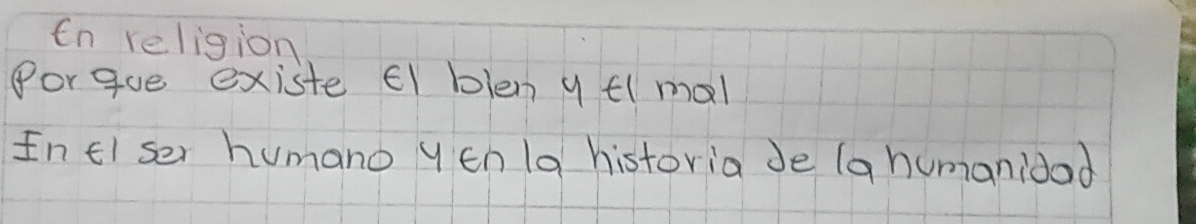 En religion
Por que existe El bien y El mal
In El ser humano y En la historia de la humanidad